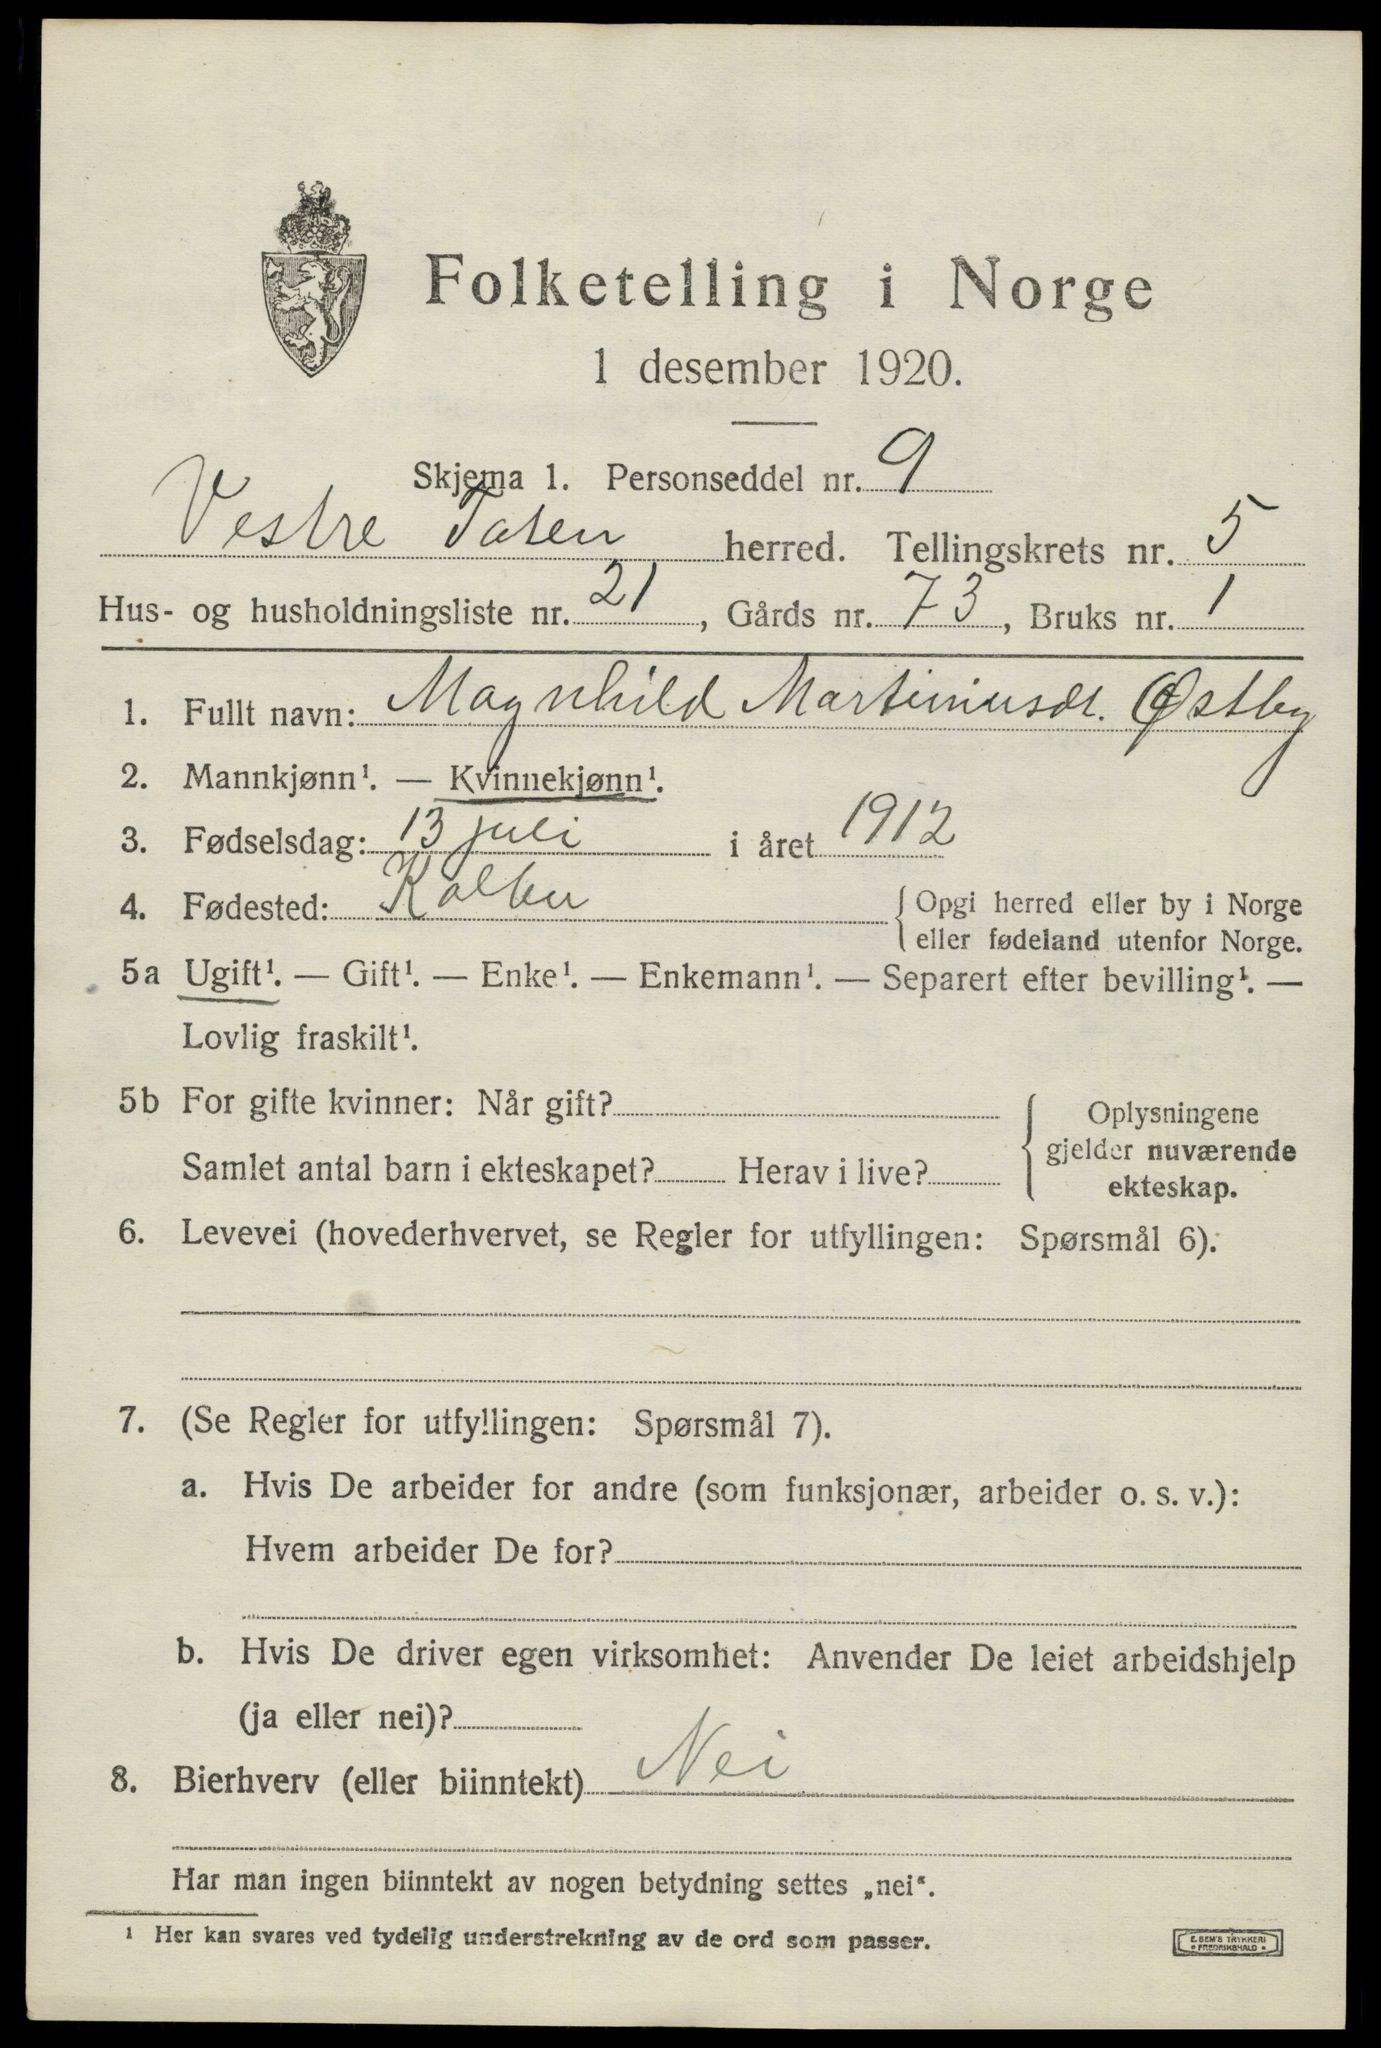 Folketelling i Norge
1 desember 1920.
Skjema 1. Personseddel nr. 9
Vestre Toten herred. Tellingskrets nr. 5
Hus- og husholdningsliste nr. 21, Gårds nr. 73, Bruks nr. 1
1. Fullt navn: Magnhild Martinusdt. Østby
2. Mannkjønn¹. — Kvinnekjønn¹.
3. Fødselsdag: 13 juli i året 1912
4. Fødested: Kolbu { Opgi herred eller by i Norge
eller fødeland utenfor Norge.
5a Ugift¹. — Gift¹. — Enke¹. — Enkemann¹. — Separert efter bevilling¹. —
Lovlig fraskilt¹.
5b For gifte kvinner: Når gift? { Oplysningene
gjelder nuværende
Samlet antal barn i ekteskapet? Herav i live?
ekteskap.
6. Levevei (hovederhvervet, se Regler for utfyllingen: Spørsmål 6).
7. (Se Regler for utfyllingen: Spørsmål 7).
a. Hvis De arbeider for andre (som funksjonær, arbeider o. s. v.):
Hvem arbeider De for?
b. Hvis De driver egen virksomhet: Anvender De leiet arbeidshjelp
(ja eller nei)?
8. Bierhverv (eller biinntekt) Nei
Har man ingen biinntekt av nogen betydning settes „nei“.
¹ Her kan svares ved tydelig understrekning av de ord som passer.
E. SEM'S TRYKKERI
• FREDRIKSHALD •